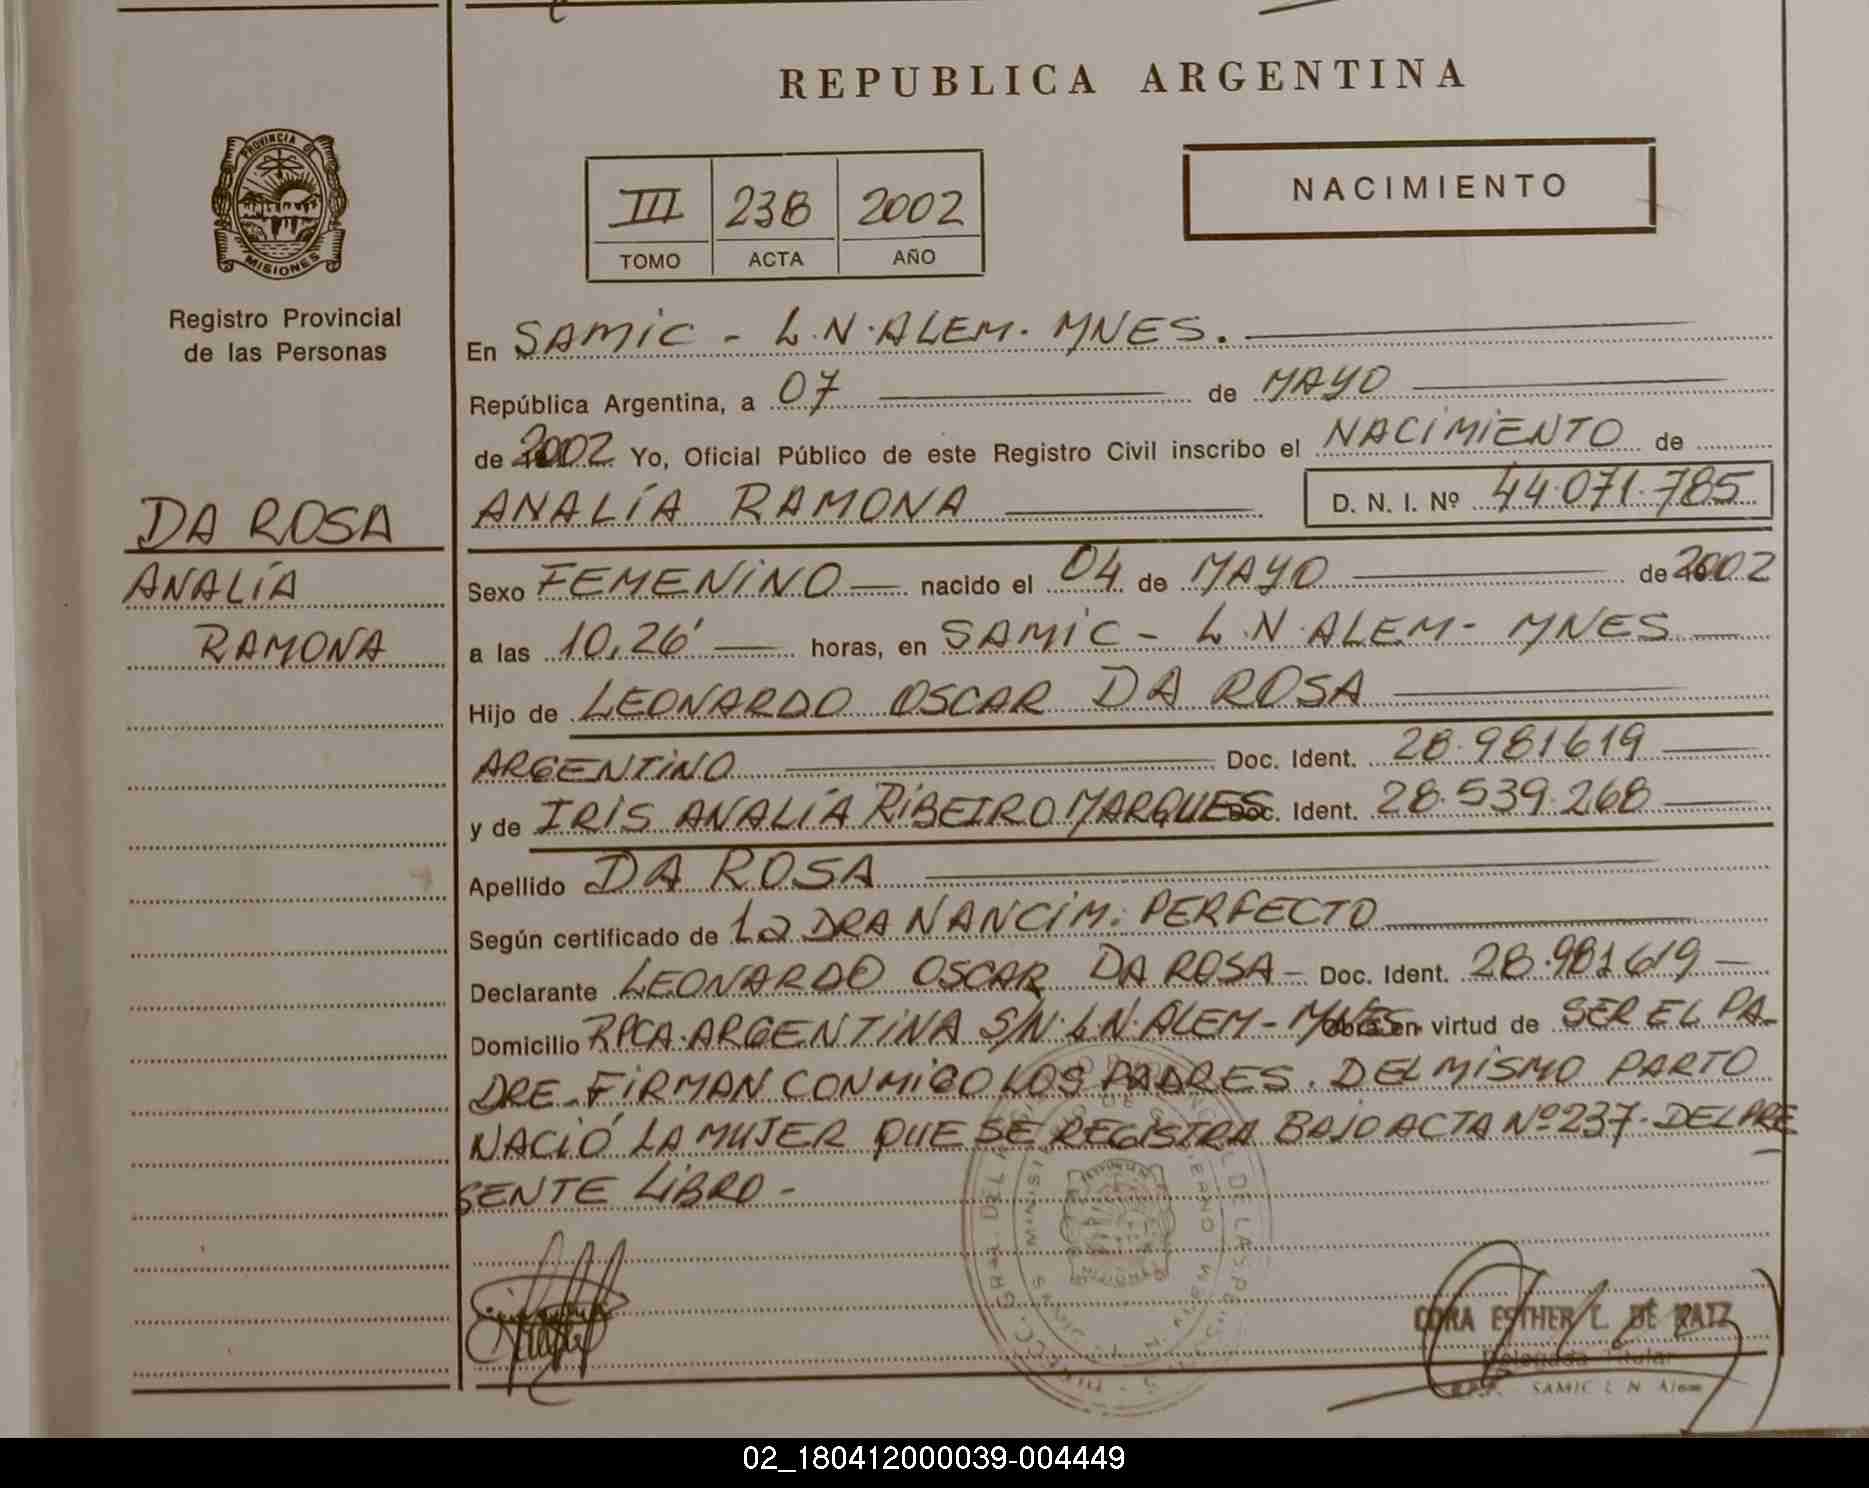 REPUBLICA ARGENTINA
PROVINCIA DE
MISIONES
Registro Provincial
de las Personas
NACIMIENTO
III 238 2002
TOMO ACTA AÑO
En SAMIC - L.N.ALEM. MNES.
República Argentina, a 07 de MAYO
de 2002 Yo, Oficial Público de este Registro Civil inscribo el NACIMIENTO de
ANALÍA RAMONA D. N. I. Nº 44.071.785
DA ROSA
ANALÍA
RAMONA
Sexo FEMENINO nacido el 04 de MAYO de 2002
a las 10,26' horas, en SAMIC - L.N.ALEM - MNES
Hijo de LEONARDO OSCAR DA ROSA
ARGENTINO Doc. Ident. 28.981619
y de IRIS ANALÍA RIBEIRO MARQUES Doc. Ident. 28.539.268
Apellido DA ROSA
Según certificado de La DRA NANCI M. PERFECTO
Declarante LEONARDO OSCAR DA ROSA - Doc. Ident. 28.981619 -
Domicilio RPCA.ARGENTINA S/N.L.N.ALEM - MNES. Obra en virtud de SER EL PA-
DRE. FIRMAN CONMIGO LOS PADRES. DEL MISMO PARTO
NACIÓ LA MUJER QUE SE REGISTRA BAJO ACTA Nº 237. DEL PRE
SENTE LIBRO -
ESTHER L. DE
Delegada Titular
SAMIC L N Alem
02_180412000039-004449